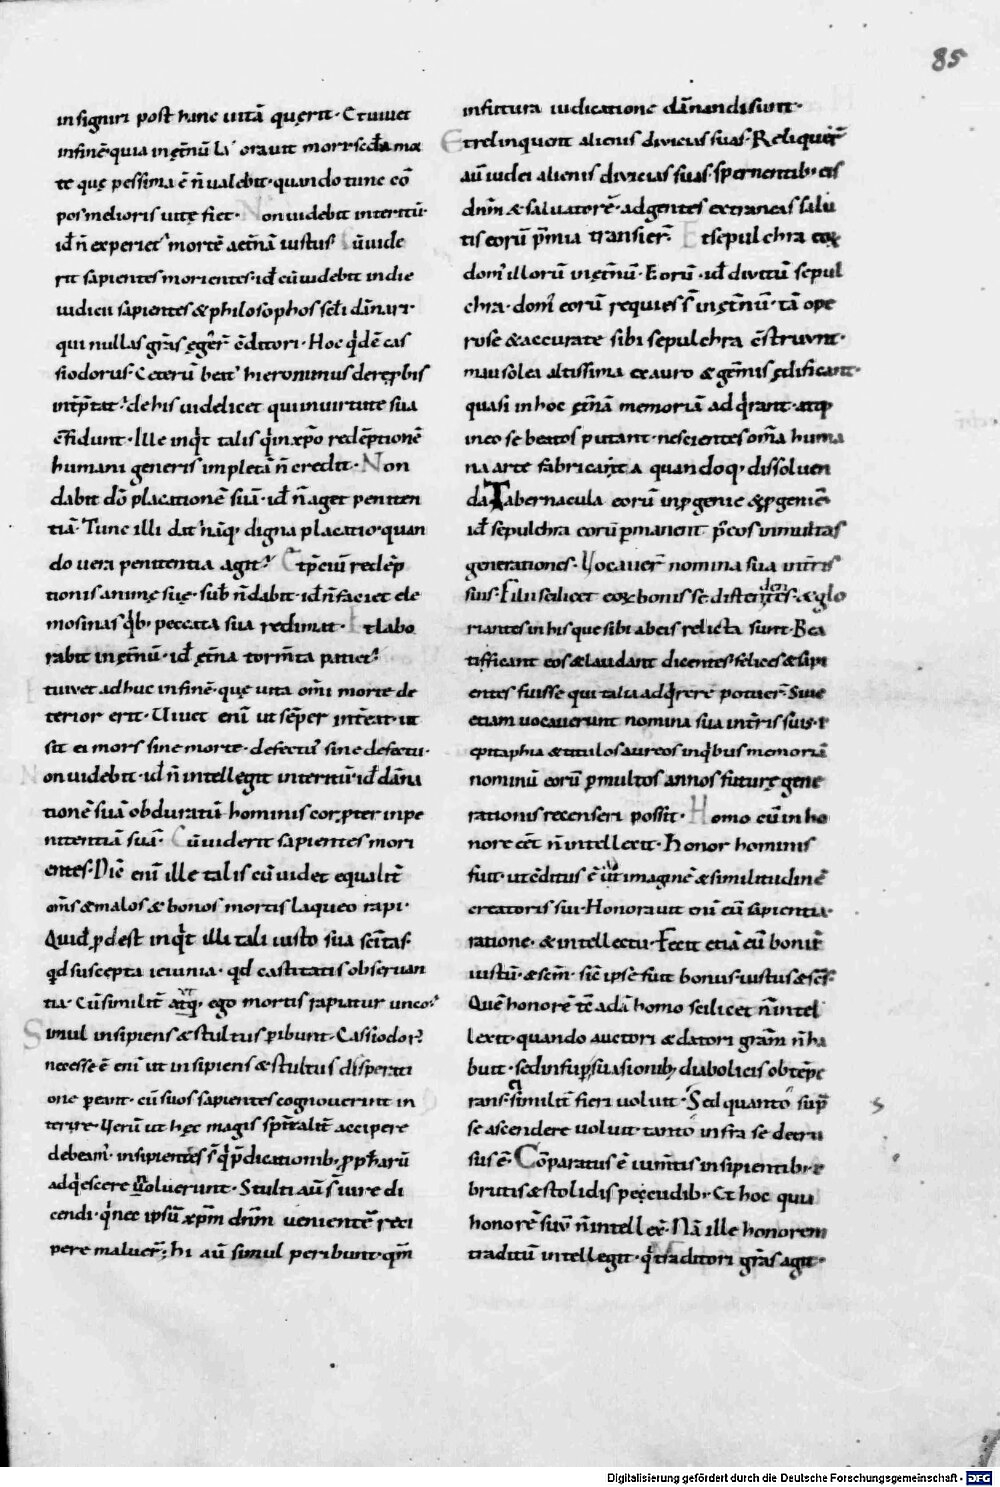 85
insigniri post hanc uitā quęrit · Et uiuet
infinē · quia in ęt̄nū la orauit mors sed̄a mor
te quę pessima ē n̄ ualebit · quando tunc cō
pos melioris uitę fiet · Non uidebit interitū ·
id̄ n̄ experiet' mortē aet̄nā iustus · Cū uide
rit sapientes morientes · id̄ cū uidebit in die
iudicii sapientes & philosophos seculi dānari ·
qui nullas grās egeř c̄ditori · Hoc qdē cas
siodorus · Ceterū beat' hieronimus de rębis
int̄ptat' · de his uidelicet qui in uirtute sua
c̄fidunt · Ille inqt talis qn xp̄o redēptionē
humani generis impletā n̄ credit · Non
dabit dō placationē suā · id̄ n̄ aget peniten
tiā · Tunc illi dat' nāq digna placatio · quan
do uera penitentia agit' · Et p̄ciū redēp
tionis animę suę · sub n̄ dabit · id̄ n̄ faciet ele
mosinas qb; peccata sua redimat · Et labo
rabit in ęt̄nū · id̄ ęt̄na torm̄ta patiet'
& uiuet adhuc in finē · quę uita om̄i morte de
terior erit · Uiuet eni ut sēper int̄eat · ut
sit ei mors sine morte · defectus sine defectu ·
Non uidebit · id̄ n̄ intellegit interitū · id̄ dāna
tionē suā obduratū hominis cor · ppter inpe
nitentiā suā · Cū uiderit sapientes mori
entes · Dic̄ eni ille talis cū uidet equalit̄
om̄s & malos & bonos mortis laqueo rapi ·
Quid pdest inqt illi tali iusto sua scītas ·
qd suscepta ieiunia · qd castitatis obseruan
tia · Cū similit̄ atq; ego mortis rapiatur unco ·
Simul insipiens & stultus pibunt · Cassiodor'
necesse ē eni ut insipiens & stultus disperati
one peant · cū suos sapientes cognouerint in
terire · Uerū ut hęc magis spiritalit̄ accipere
debeam' · insipientes s̄ q p̄dicationib; pphārū
adqescere noluerunt · Stulti aū s̄ iure di
cendi · q nec ipsū xp̄m dn̄m uenientē reci
pere maluer̄ · hi aū simul peribunt · qm̄
in futura iudicatione dānandi sunt ·
Et relinquent alienis diuicias suas · Reliquer̄
aū iudei alienis diuicias suas · spernentib; eis
dn̄m & saluatorē · ad gentes extraneas salu
tis eorū p̄mia transier̄ · Et sepulchra eoꝝ
dom' illorū in ęt̄nū · Eorū · id̄ diuitū sepul
chra · dom' eorū requies s̄ in ęt̄nū · tā ope
rose & accurate sibi sepulchra c̄struunt ·
mausolea altissima ex auro & gēmis ędificant ·
quasi in hoc ęt̄nā memoriā adqrant · atq;
in eo se beatos putant · nescientes om̄a huma
na arte fabricata quandoq; dissoluen
da · Tabernacula eorū in pgenie & pgeniē
id̄ sepulchra eorū pmanent p̄ eos in multas
generationes · Uocauer̄ nomina sua in t̄ris
suis · Filii scilicet eoꝝ bonis se distendentes · & glo
riantes in his que sibi ab eis relicta sunt · Bea
tificant eos & laudant dicentes · felices & sapi
entes fuisse qui talia adqrere potuer̄ · Siue
etiam uocauerunt nomina sua in t̄ris suis · i
epitaphia & titulos aureos in qbus memoriā
nominū eorū p multos annos futurę gene
rationis recenseri possit · Homo cū in ho
nore eēt n̄ intellexit · Honor hominis
fuit · ut c̄ditus ē ad imaginē & similitudinē
creatoris sui · Honorauit eni eū sapientia ·
ratione · & intellectu · Fecit etiā eū bonū
iustū · & scm̄ · sic̄ ipse fuit bonus · iustus & scs̄ ·
Quē honorē tc̄ adā homo scilicet n̄ intel
lexit · quando auctori & datori grām n̄ ha
buit · sed insup suasionib; diabolicis obtēpe
rans · ei similit̄ fieri uoluit · Sed quanto sup̄
se ascendere uoluit · tanto infra se detru
sus ē · Cōparatus ē ium̄tis insipientib; · i
brutis & stolidis pecudib; · Et hoc quia
honorē suū n̄ intellex̄ · Nā ille honorem
traditū intellegit · q traditori grās agit ·
Digitalisierung gefördert durch die Deutsche Forschungsgemeinschaft - DFG